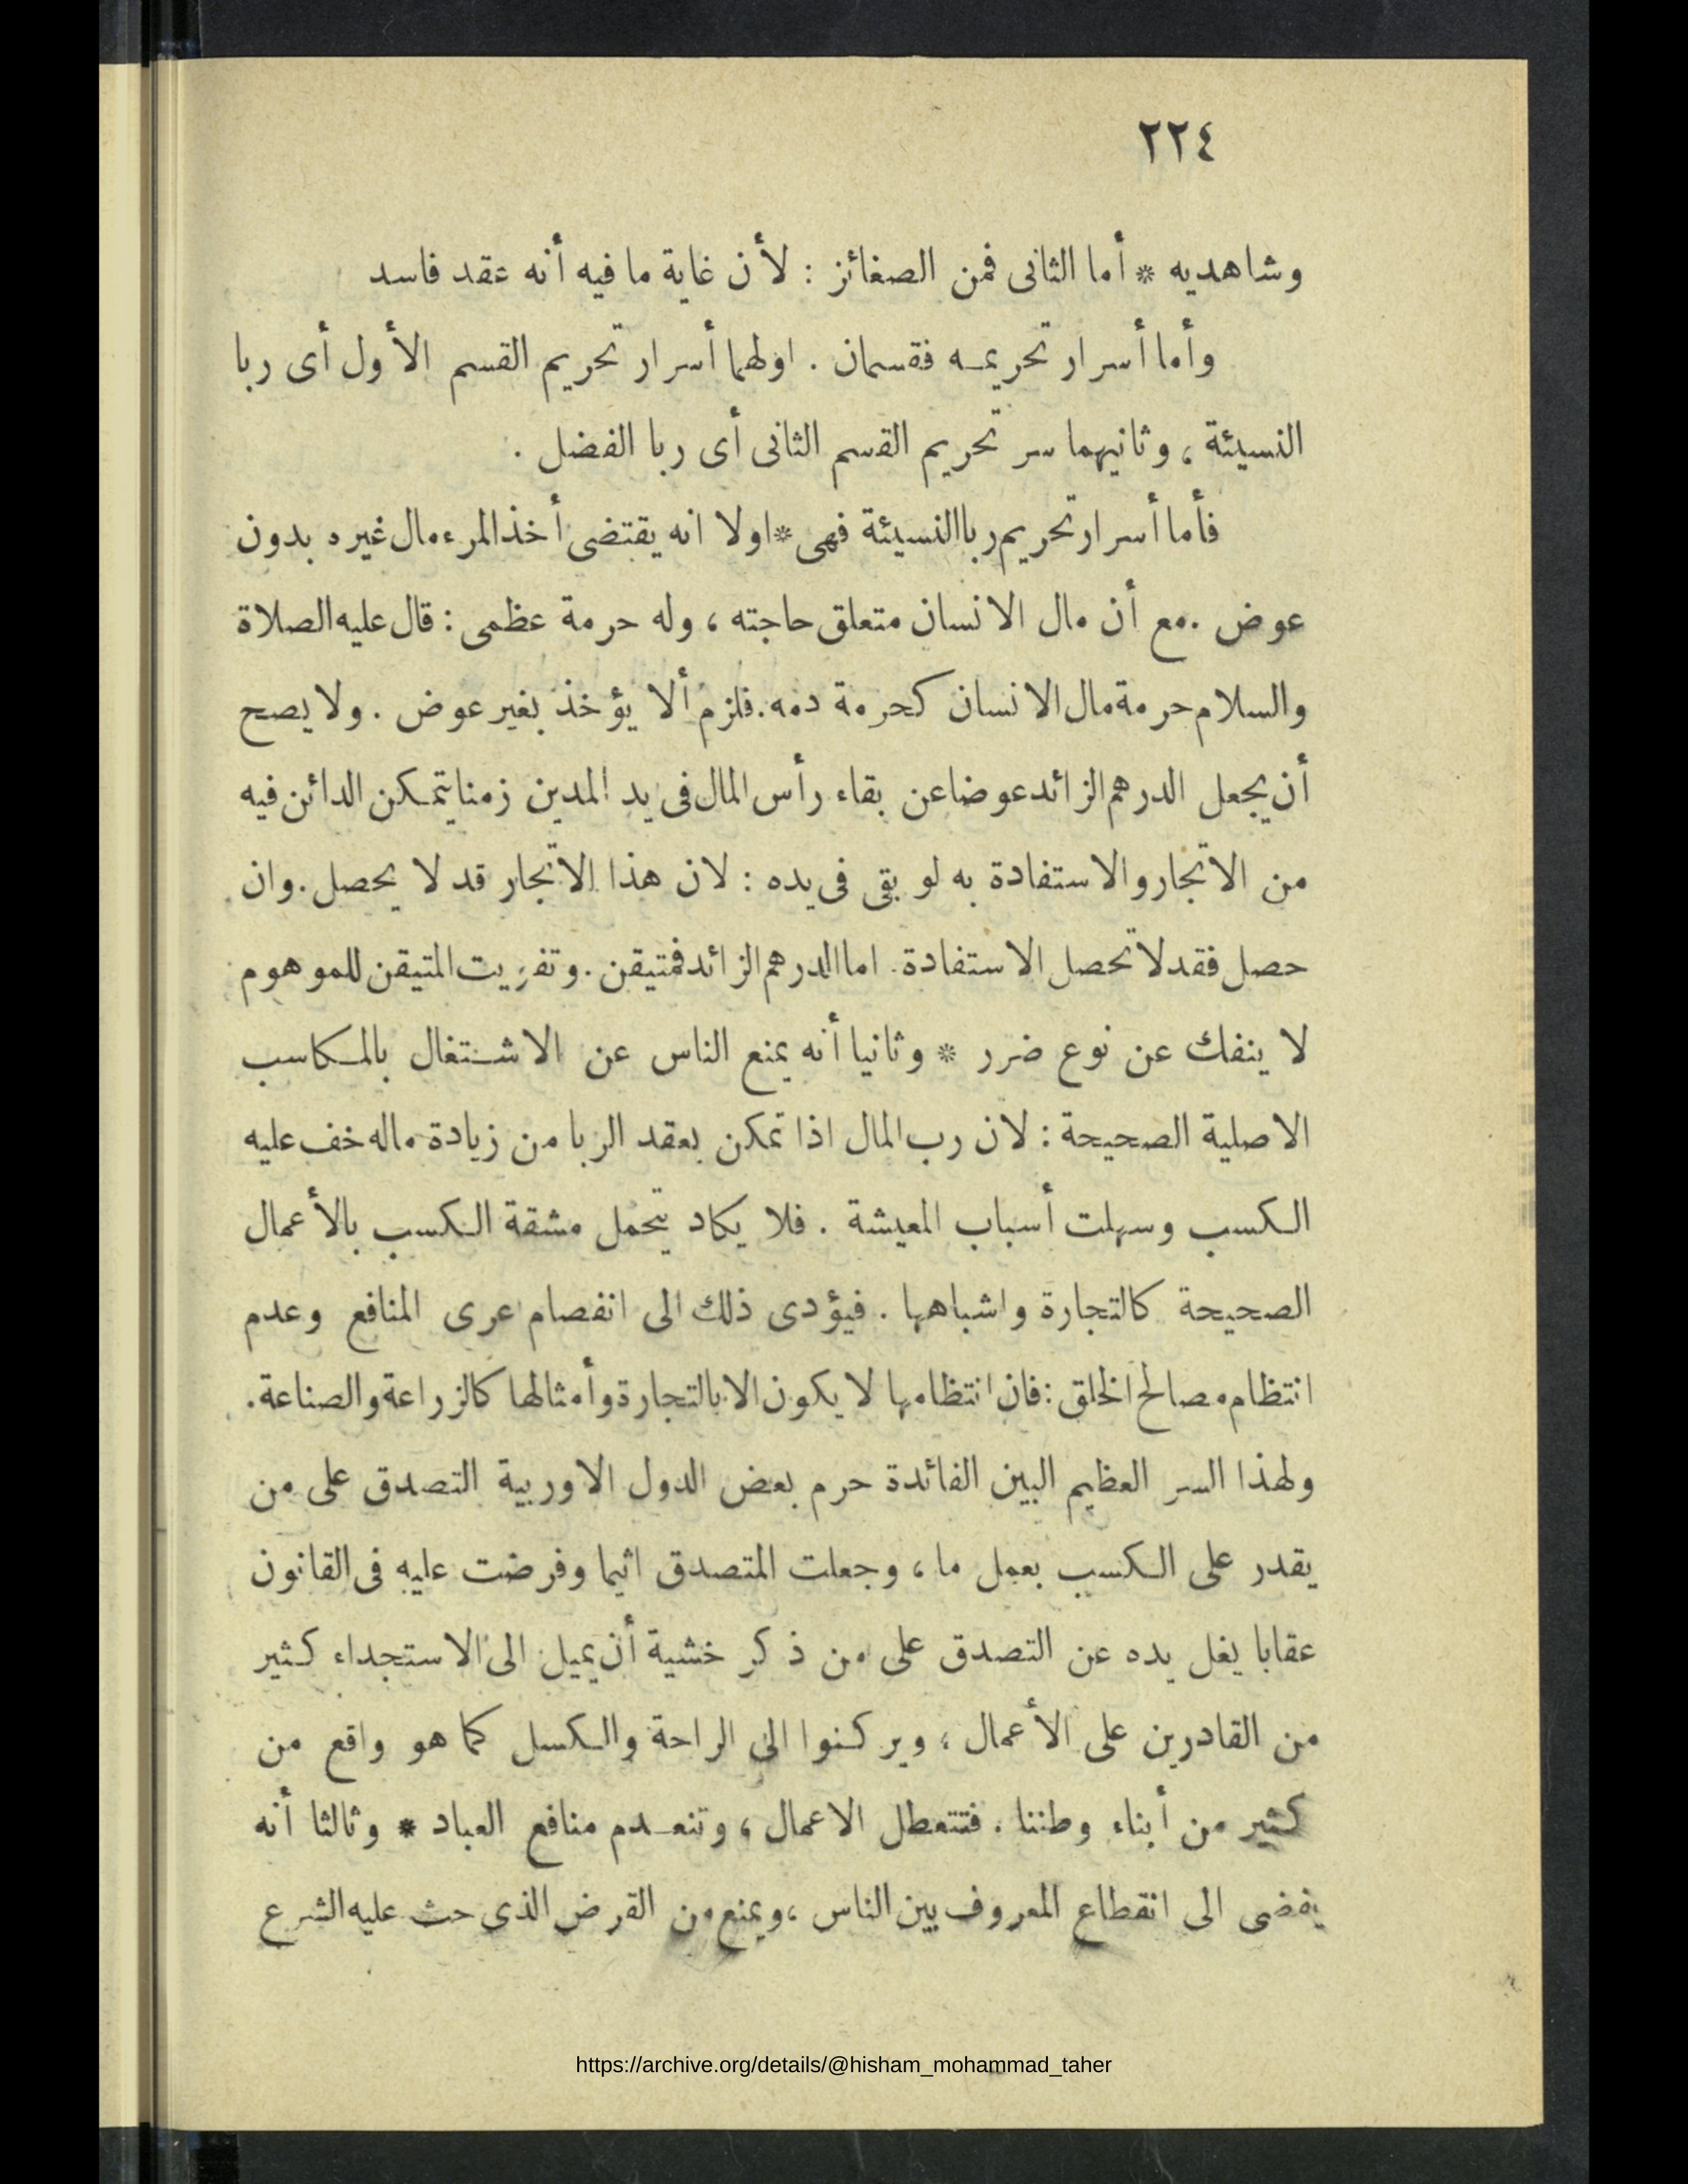 ٢٢٤
وشاهديه * أما الثانى فمن الصغائز : لأن غاية ما فيه أنه عقد فاسد
وأما أسرار تحريمه فقسمان . اولهما أسرار تحريم القسم الأول أى ربا
النسيئة ، وثانيهما سر تحريم القسم الثانى أى ربا الفضل .
فأما أسرار تحريم ربا النسيئة فهى * اولا انه يقتضى أخذ المرء مال غيره بدون
عوض . مع أن مال الانسان متعلق حاجته ، وله حرمة عظمى : قال عليه الصلاة
والسلام حرمة مال الانسان كحرمة دمه . فلزم ألا يؤخذ بغير عوض . ولا يصح
أن يجعل الدرهم الزائد عوضا عن بقاء رأس المال فى يد المدين زمنا يتمكن الدائن فيه
من الاتجار والاستفادة به لو بقى فى يده : لان هذا الاتجار قد لا يحصل . وان
حصل فقد لا تحصل الاستفادة . اما الدرهم الزائد فمتيقن . وتفويت المتيقن للموهوم
لا ينفك عن نوع ضرر * وثانيا أنه يمنع الناس عن الاشتغال بالمكاسب
الاصلية الصحيحة : لان رب المال اذا تمكن بعقد الربا من زيادة ماله خف عليه
الكسب وسهلت أسباب المعيشة . فلا يكاد يتحمل مشقة الكسب بالأعمال
الصحيحة كالتجارة واشباهها . فيؤدى ذلك الى انفصام عرى المنافع وعدم
انتظام مصالح الخلق : فان انتظامها لا يكون الا بالتجارة وأمثالها كالزراعة والصناعة .
ولهذا السر العظيم البين الفائدة حرم بعض الدول الاوربية التصدق على من
يقدر على الكسب بعمل ما ، وجعلت المتصدق اثيما وفرضت عليه فى القانون
عقابا يغل يده عن التصدق على من ذكر خشية أن يميل الى الاستجداء كثير
من القادرين على الأعمال ، ويركنوا الى الراحة والكسل كما هو واقع من
كثير من أبناء وطننا . فتتعطل الاعمال ، وتنعدم منافع العباد * وثالثا أنه
يفضى الى انقطاع المعروف بين الناس ، ويمنع من القرض الذى حث عليه الشرع
https://archive.org/details/@hisham_mohammad_taher